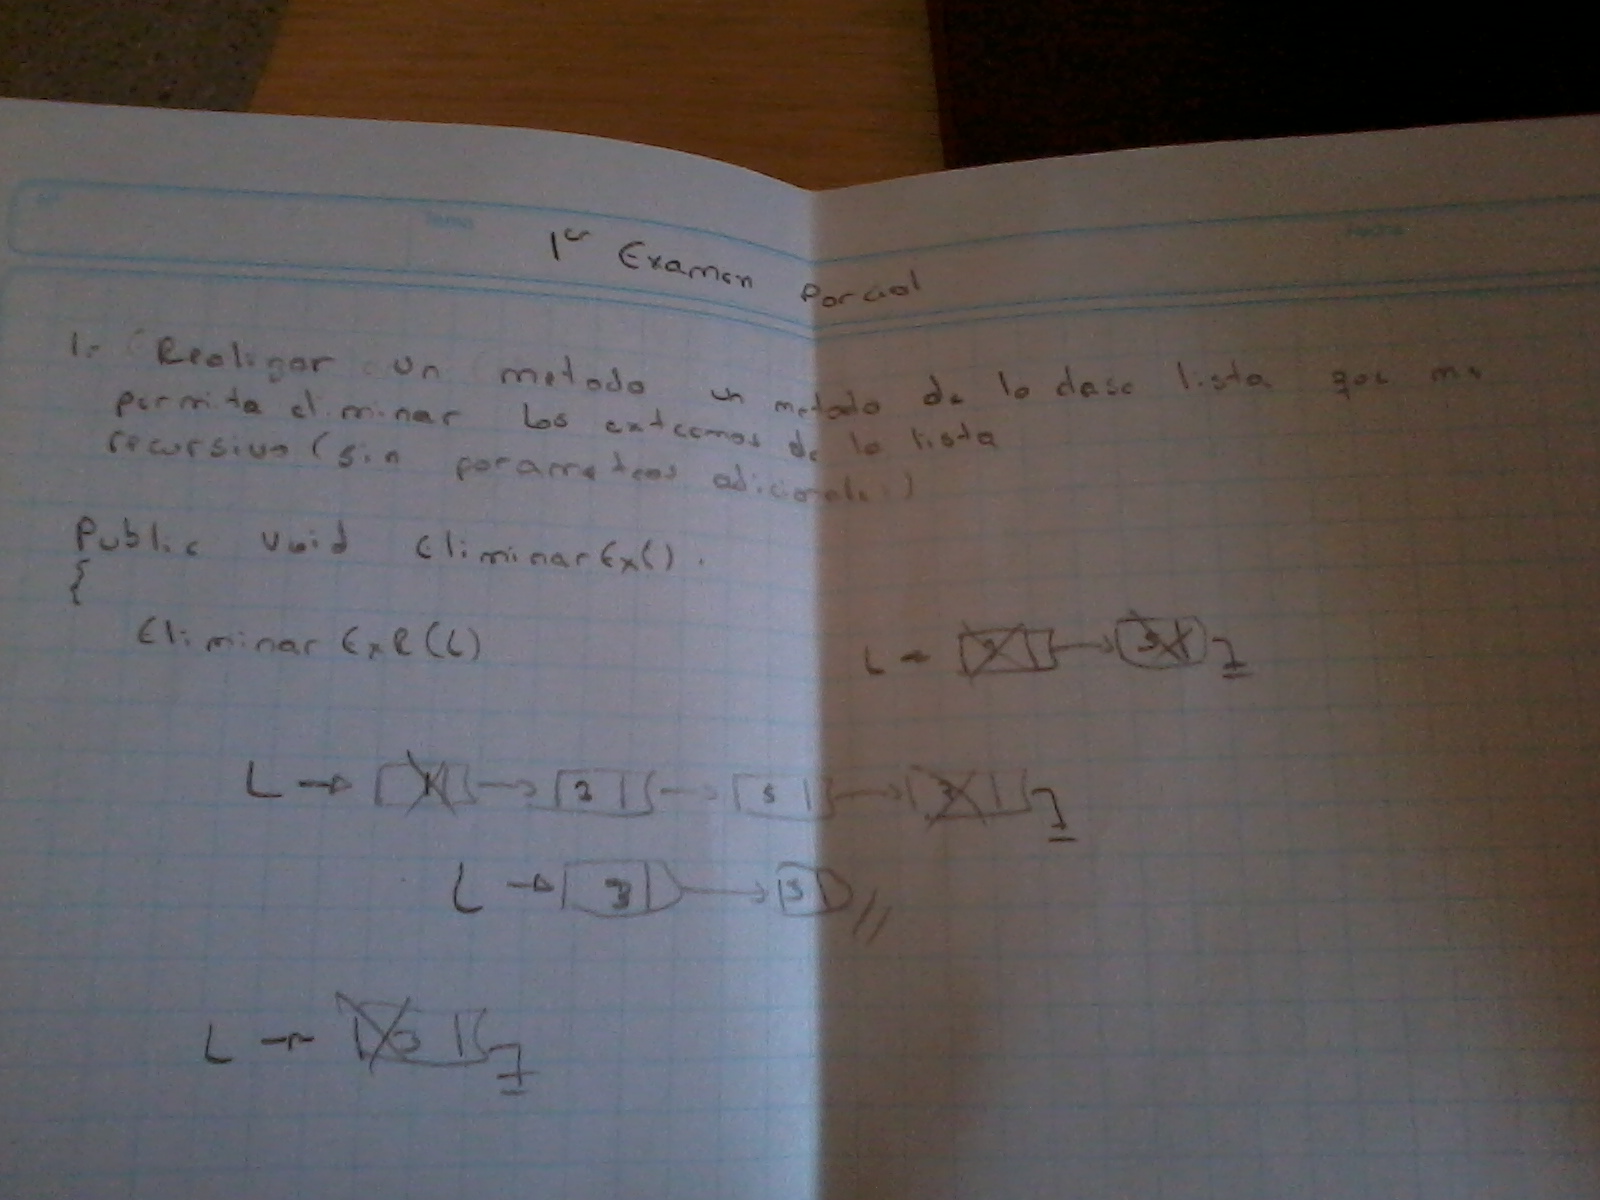 1er Examen Parcial
1.- Realizar un metodo un metodo de la clase lista que me
permita eliminar los extremos de la lista
recursivo (sin parametros adicionales)
Public void EliminarEx().
{
EliminarExR(L)
L → 3
L → 2 5
L → 3 5 //
L →